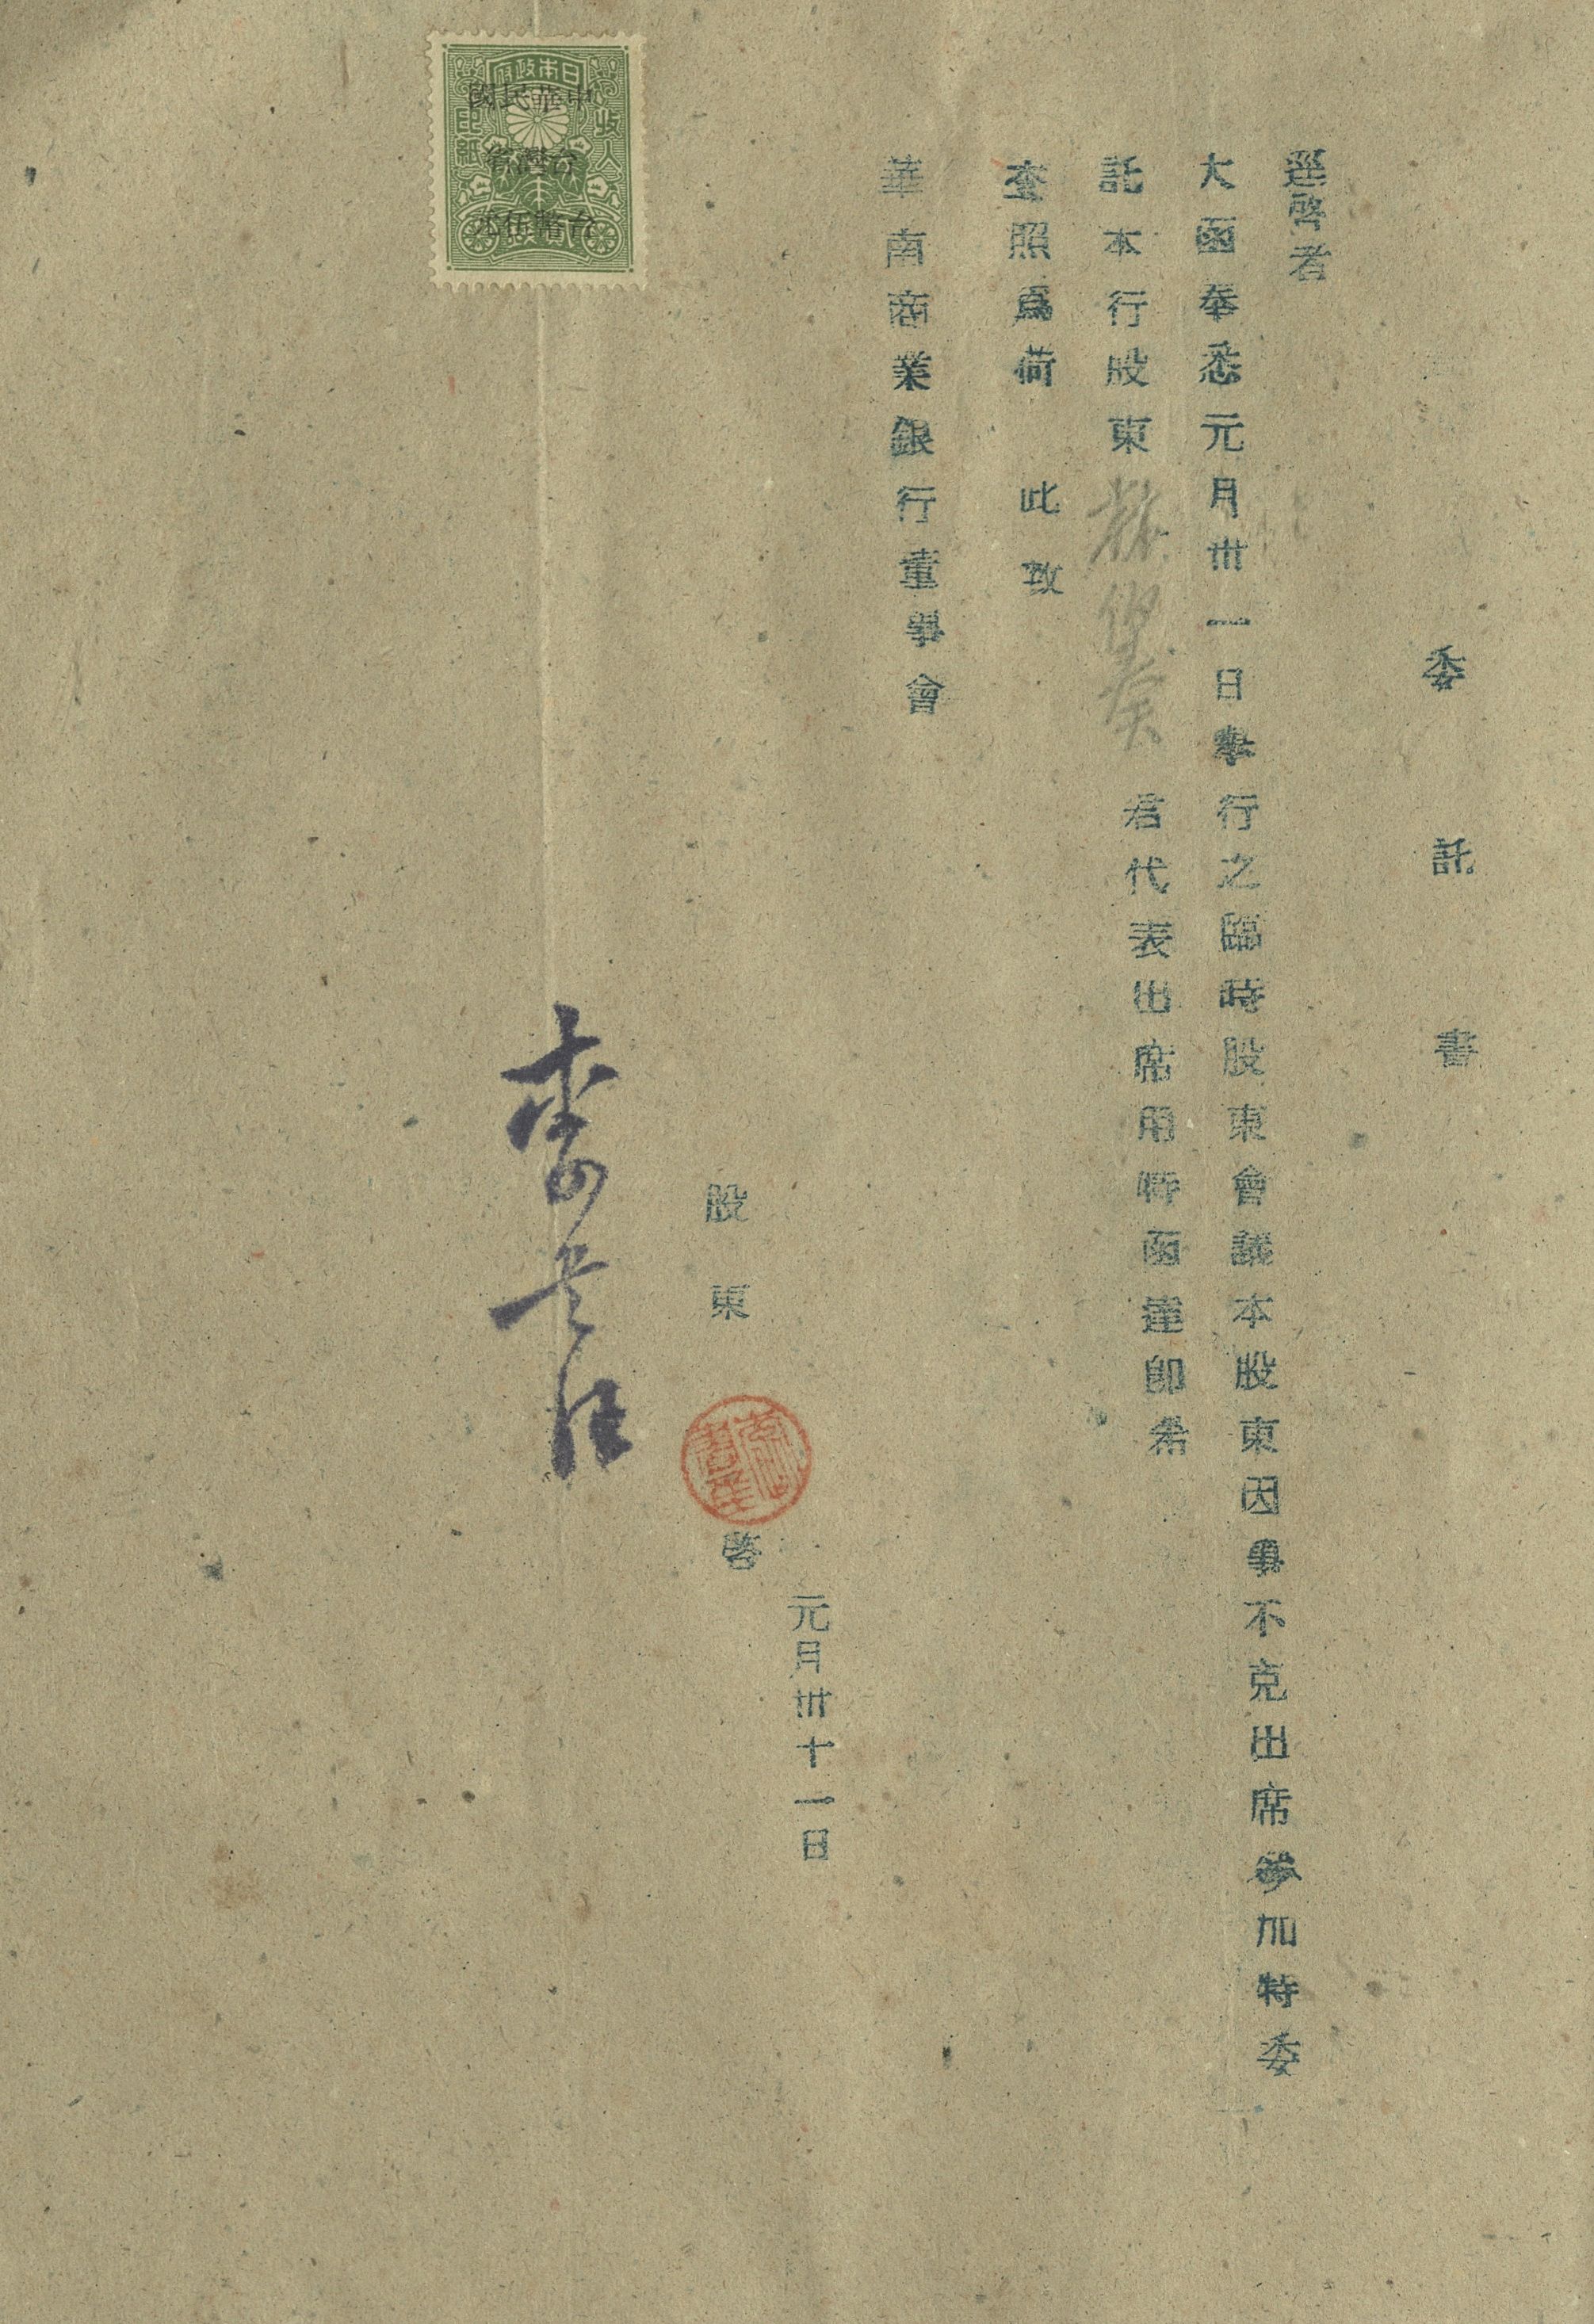 委託書
逕啓者
大函奉悉元月卅一日舉行之臨時股東會議本股東因事不克出席參加特委
託本行股東 君代表出席用特函達即希
查照爲荷 此致
華南商業銀行董事會
元月卅十一日
股東 啓
日本政府
收入印紙
中華民國
台灣省
台幣伍